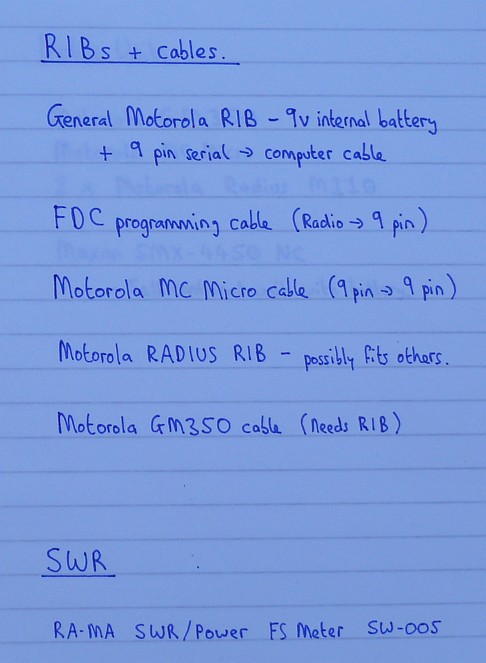 RIBs + cables.
General Motorola RIB - 9v internal battery
+ 9 pin serial → computer cable
FDC programming cable (Radio → 9 pin)
Motorola MC Micro cable (9pin → 9 pin)
Motorola RADIUS RIB - possibly fits others.
Motorola GM350 cable (Needs RIB)
SWR
RA-MA SWR/Power FS Meter SW-005